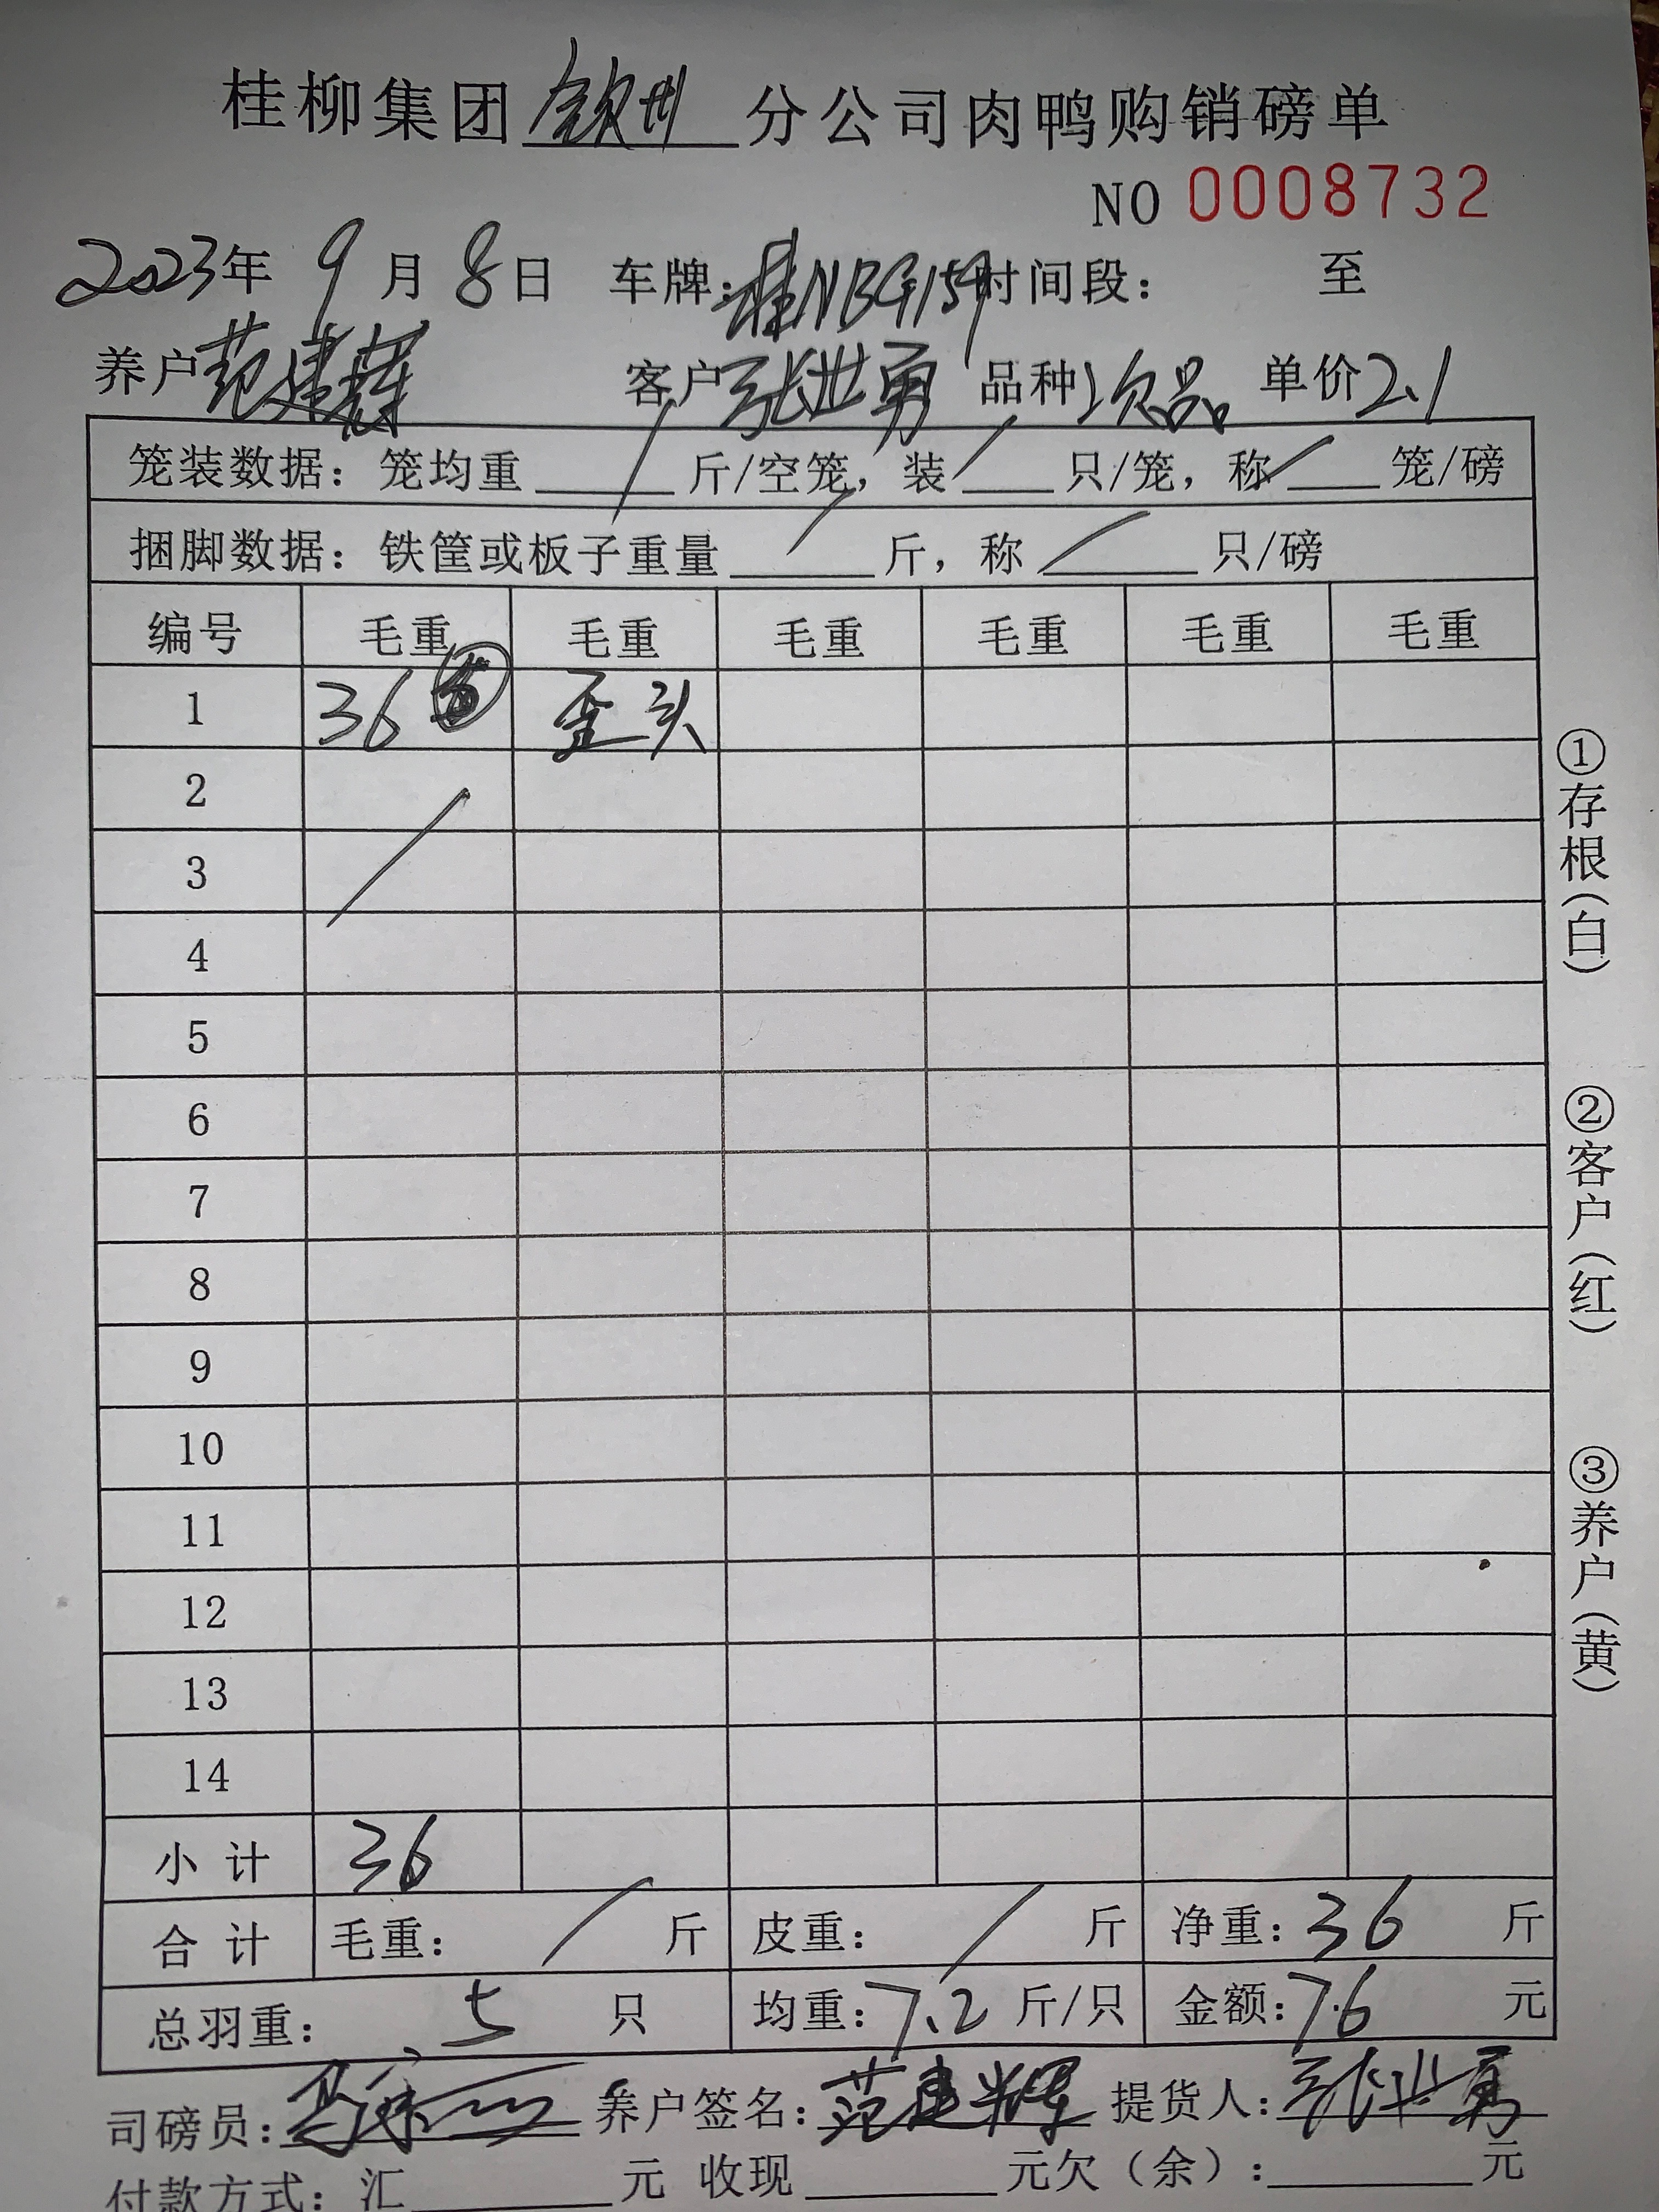 桂柳集团 钦州 分公司肉鸭购销磅单
NO 0008732
2023年 9月 8日 车牌:桂NBG159 时间段: 至
养户 范建辉 客户 张世勇 品种 次品 单价 2.1
笼装数据: 笼均重 / 斤/空笼, 装 / 只/笼, 称 / 笼/磅
捆脚数据: 铁筐或板子重量 / 斤, 称 / 只/磅
编号 毛重 毛重 毛重 毛重 毛重 毛重
1 36 歪头
2
3
4
5
6
7
8
9
10
11
12
13
14
小计 36
合计 毛重: / 斤 皮重: / 斤 净重: 36 斤
总羽重: 5 只 均重: 7.2 斤/只 金额: 76 元
司磅员: 养户签名: 范建辉 提货人: 张世勇
付款方式: 汇 元 收现 元欠(余): 元
①存根(白)
②客户(红)
③养户(黄)